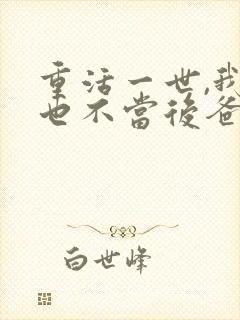 重活一世,我
也不當後爸
白世峰